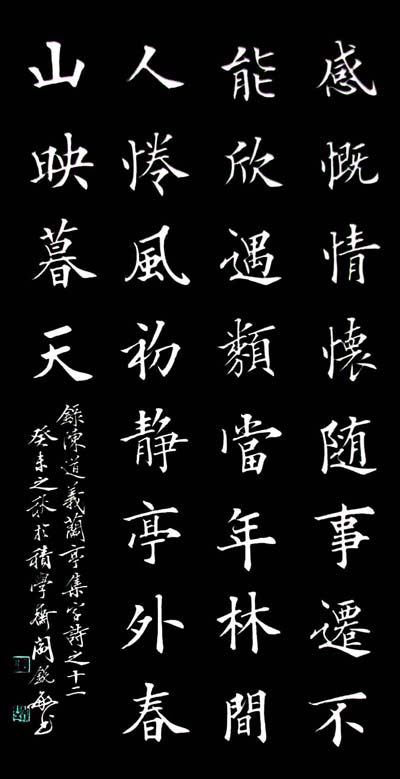 感慨情懷随事遷不
能欣遇類當年林間
人惓風初静亭外春
山映暮天
錄陳道義蘭亭集字詩之十二
癸未之秋於積學齋閻銳敏书